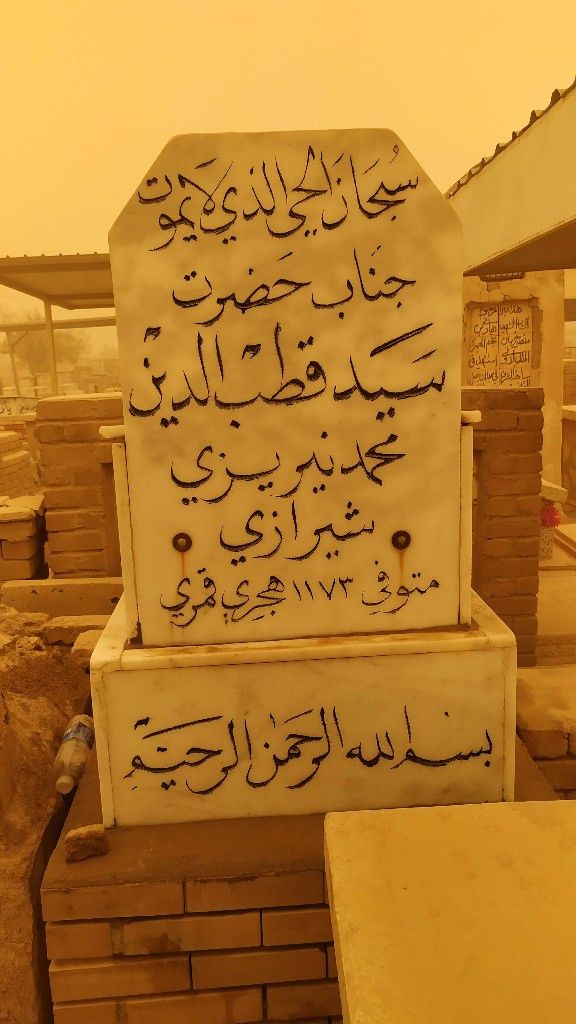 سُبْحَانَ الحي الذي لَا يموت
جناب حَضرت
سَيَد قطب الدين
محمد نيريزي
شيرازي
متوفي ١١٧٣ هجري قمري
بسم الله الرحمن الرحيم